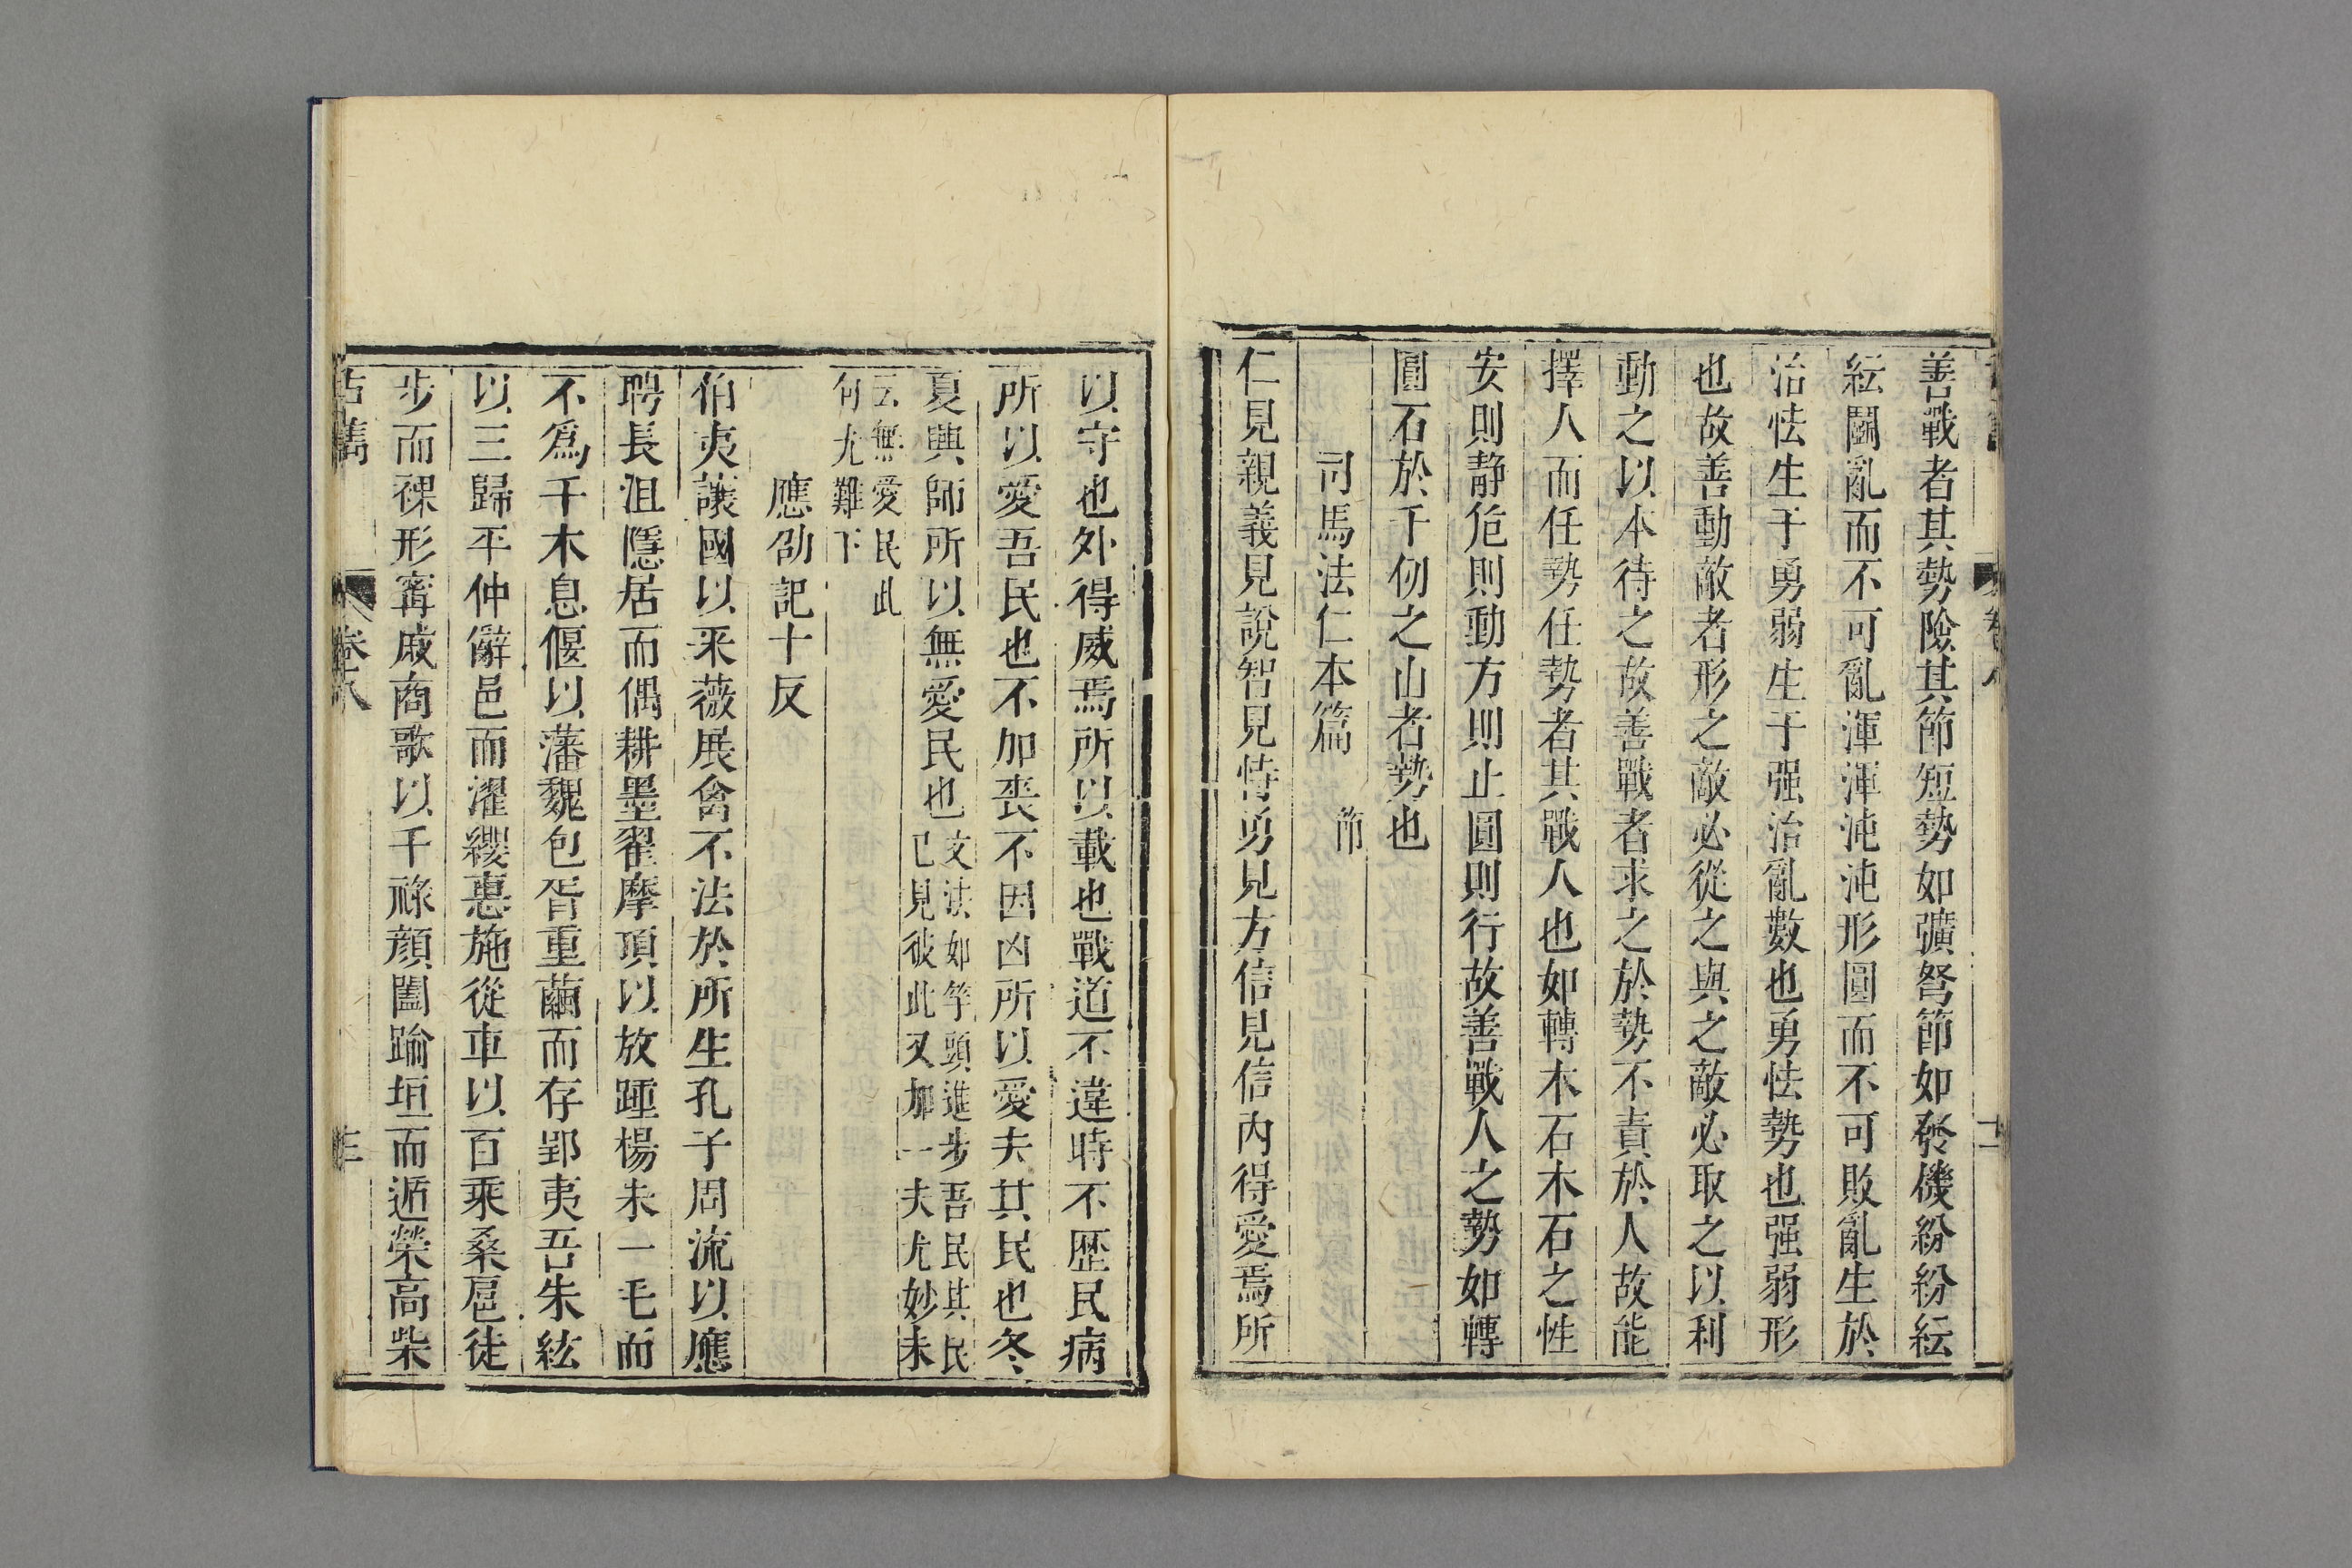 善戰者其勢險其節短勢如彍弩節如發機紛紛紜
紜鬬亂而不可亂渾渾沌沌形圓而不可敗亂生於
治怯生于勇弱生于强治亂數也勇怯勢也强弱形
也故善動敵者形之敵必從之與之敵必取之以利
動之以本待之故善戰者求之於勢不責於人故能
擇人而任勢任勢者其戰人也如轉木石木石之性
安則静危則動方則止圓則行故善戰人之勢如轉
圓石於千仞之山者勢也
司馬法仁本篇 節
仁見親義見說智見恃勇見方信見信内得愛焉所
以守也外得威焉所以戰也戰道不違時不歷民病
所以愛吾民也不加喪不因凶所以愛夫其民也冬
夏不興師所以兼愛民也
文法如竿頭進步吾民其民
已見彼此又加一夫尤妙未
云兼愛民此
何尤難下
應劭記十反
伯夷讓國以采薇展禽不法於所生孔子周流以應
聘長沮隱居而偶耕墨翟摩頂以放踵楊朱一毛而
不爲干木息偃以藩魏包胥重繭而存郢夷吾朱紘
以三歸平仲辭邑而濯纓惠施從車以百乘桑扈徒
步而裸形甯戚商歌以干祿顔闔踰垣而遁榮高柴
古雋 卷八